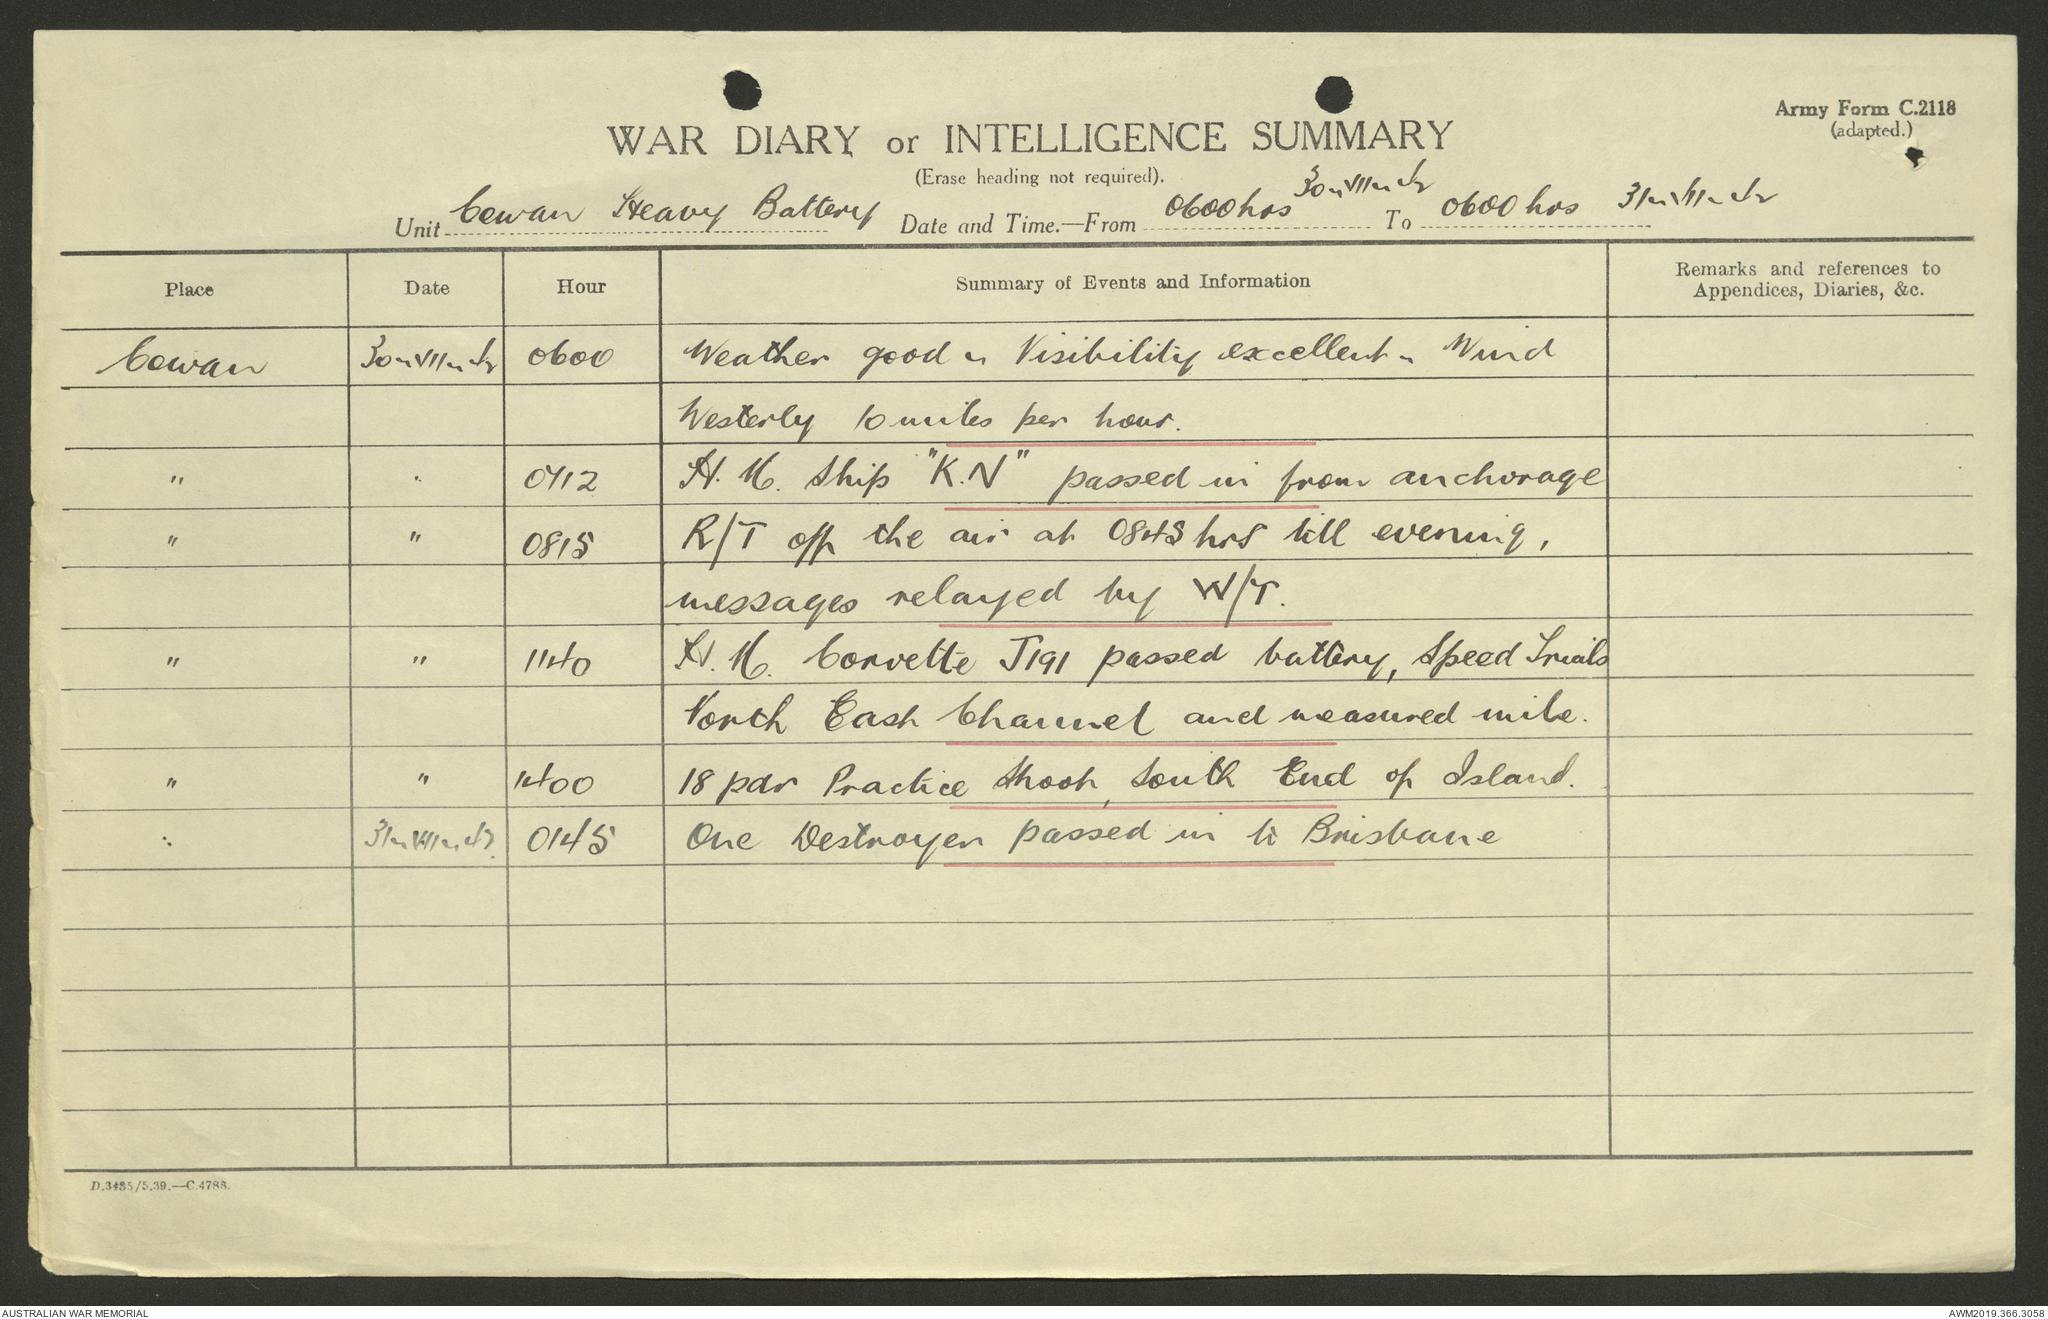 Army Form C.2118
(adapted.)
WAR DIARY or INTELLIGENCE SUMMARY
(Erase heading not required).
Unit Cowan Heavy Battery Date and Time.—From 0600hrs 30~VII~42 To 0600 hrs 31~VII~42
Place Date Hour Summary of Events and Information Remarks and references to
Appendices, Diaries, &c.
Cowan 30~VII~42 0600 Weather good ~ Visibility excellent ~ Wind
Westerly 10 miles per hour.
" " 0712 H.M. Ship "K.N" passed in from anchorage
" " 0815 R/T off the air at 0845 hrs till evening,
messages relayed by W/T.
" " 1140 H.M. Corvette J191 passed battery, Speed Trials
North East Channel and measured mile.
" " 1400 18 pdr Practice Shoot, South End of Island.
" 31~VII~42 0145 One Destroyer passed in to Brisbane
D.3435/5.39.—C.4788.
AUSTRALIAN WAR MEMORIAL
AWM2019.366.3058